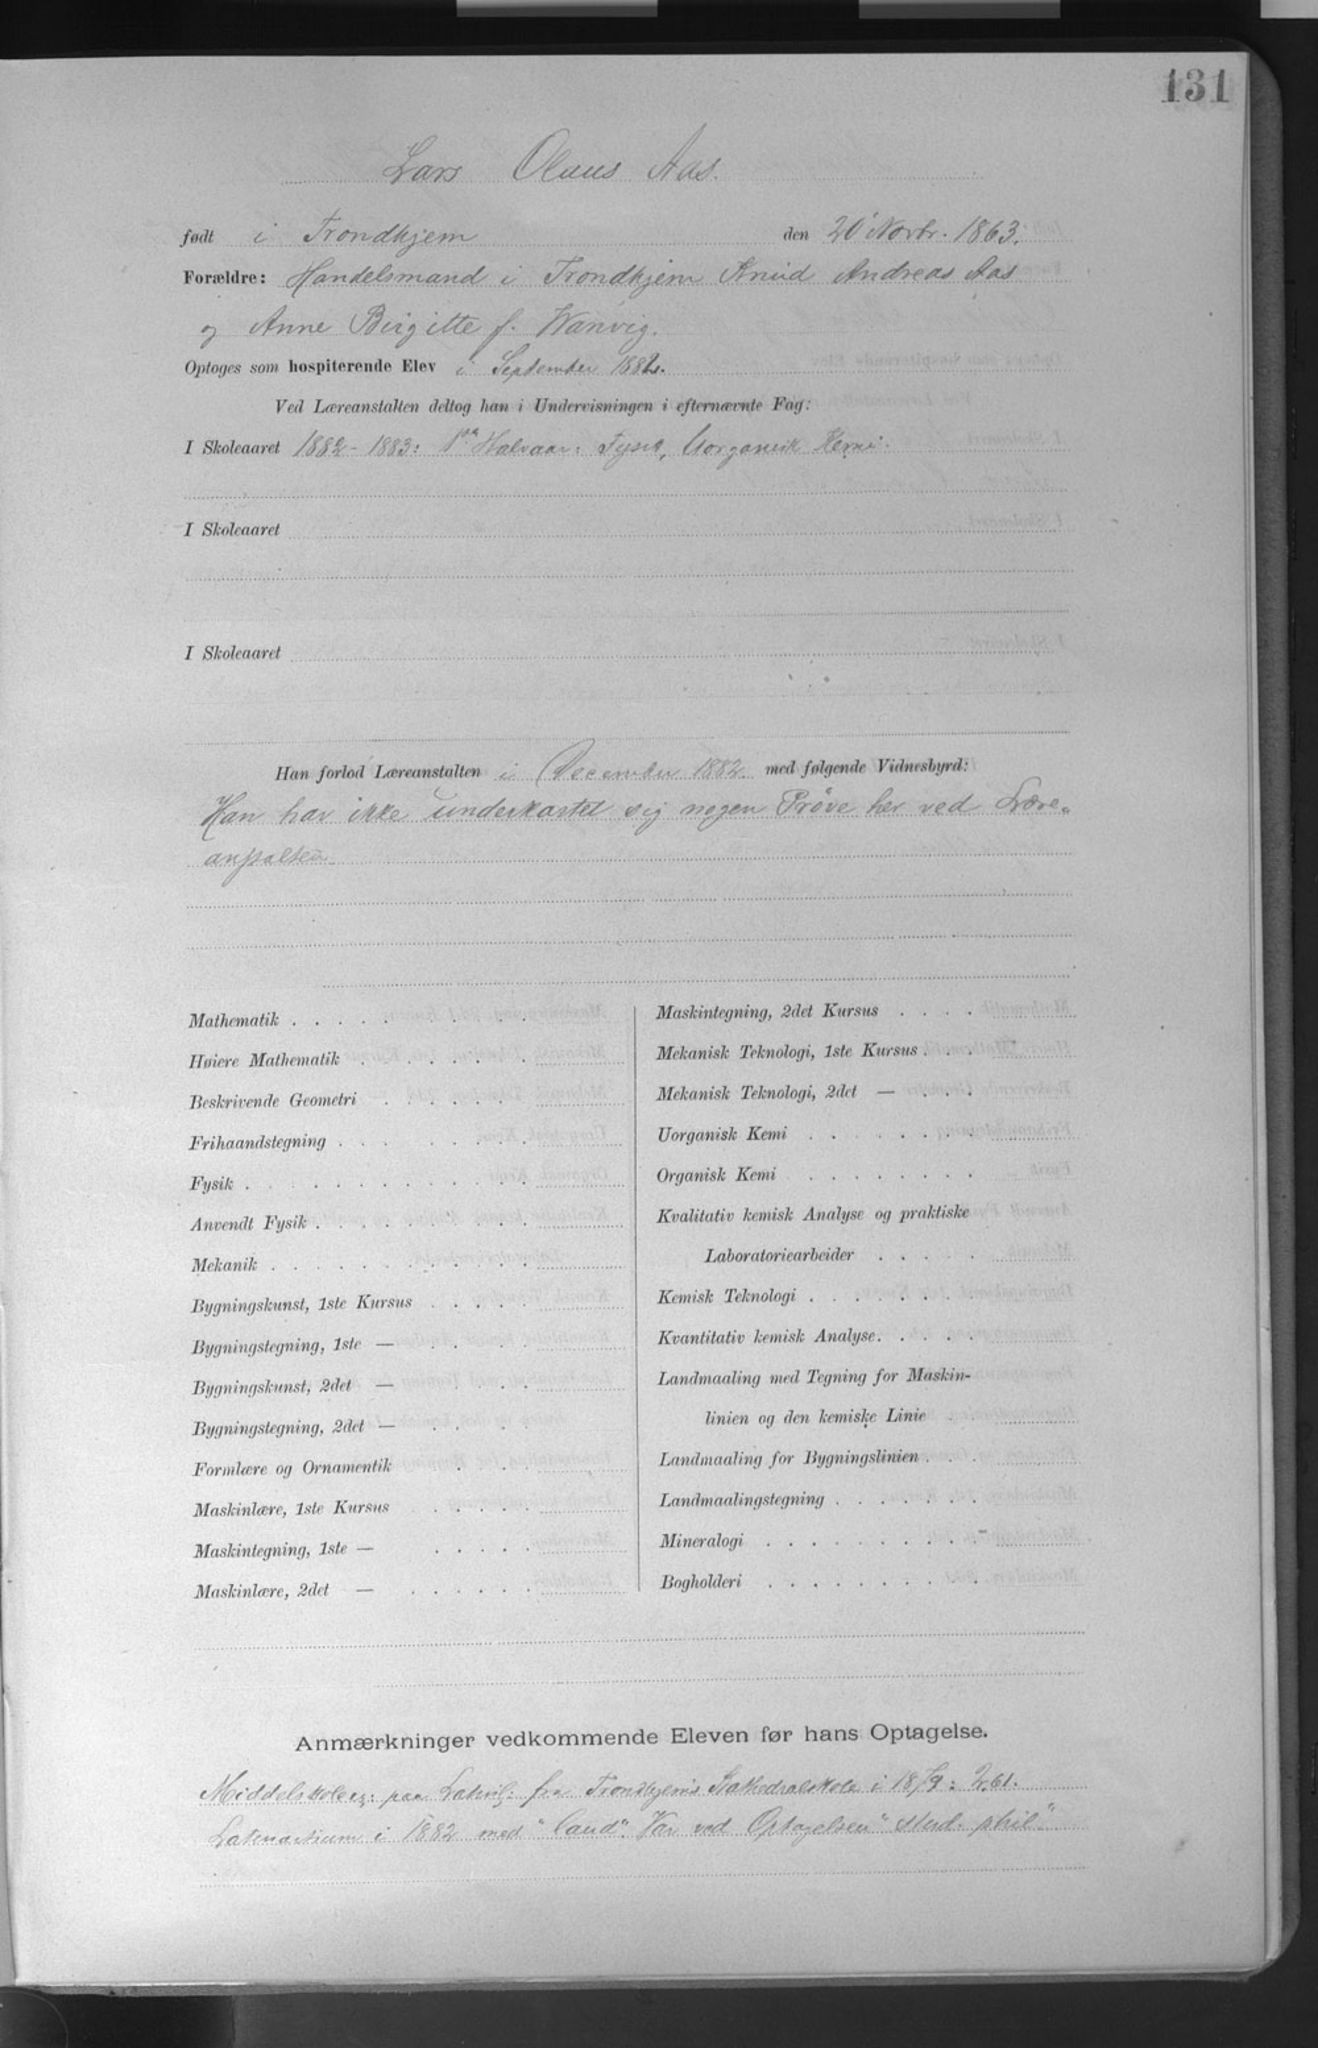 131
Lars Olaus Aas.
født i Trondhjem den 20' Novbr. 1863.
Forældre: Handelsmand i Trondhjem Knud Andreas Aas
og Anne Birgitte f. Wanvig.
Optoges som hospiterende Elev i September 1882.
Ved Læreanstalten deltog han i Undervisningen i efternævnte Fag:
I Skoleaaret 1882-1883: 1ste Halvaar: Fysik, Uorganisk Kemi.
I Skoleaaret
I Skoleaaret
Han forlod Læreanstalten i December 1882 med følgende Vidnesbyrd:
Han har ikke underkastet sig nogen Pröve her ved Lære-
anstalten
Mathematik
Høiere Mathematik
Beskrivende Geometri
Frihaandstegning
Fysik
Anvendt Fysik
Mekanik
Bygningskunst, 1ste Kursus
Bygningstegning, 1ste —
Bygningskunst, 2det —
Bygningstegning, 2det —
Formlære og Ornamentik
Maskinlære, 1ste Kursus
Maskintegning, 1ste —
Maskinlære, 2det —
Maskintegning, 2det Kursus
Mekanisk Teknologi, 1ste Kursus
Mekanisk Teknologi, 2det —
Uorganisk Kemi
Organisk Kemi
Kvalitativ kemisk Analyse og praktiske
Laboratoriearbeider
Kemisk Teknologi
Kvantitativ kemisk Analyse
Landmaaling med Tegning for Maskin-
linien og den kemiske Linie
Landmaaling for Bygningslinien
Landmaalingstegning
Mineralogi
Bogholderi
Anmærkninger vedkommende Eleven før hans Optagelse.
Middelskoleex: paa Latinl: fra Trondhjems Kathedralskole i 1879: 2.61.
Latinartium i 1882 med "laud". Var ved Optagelsen "stud. phil".